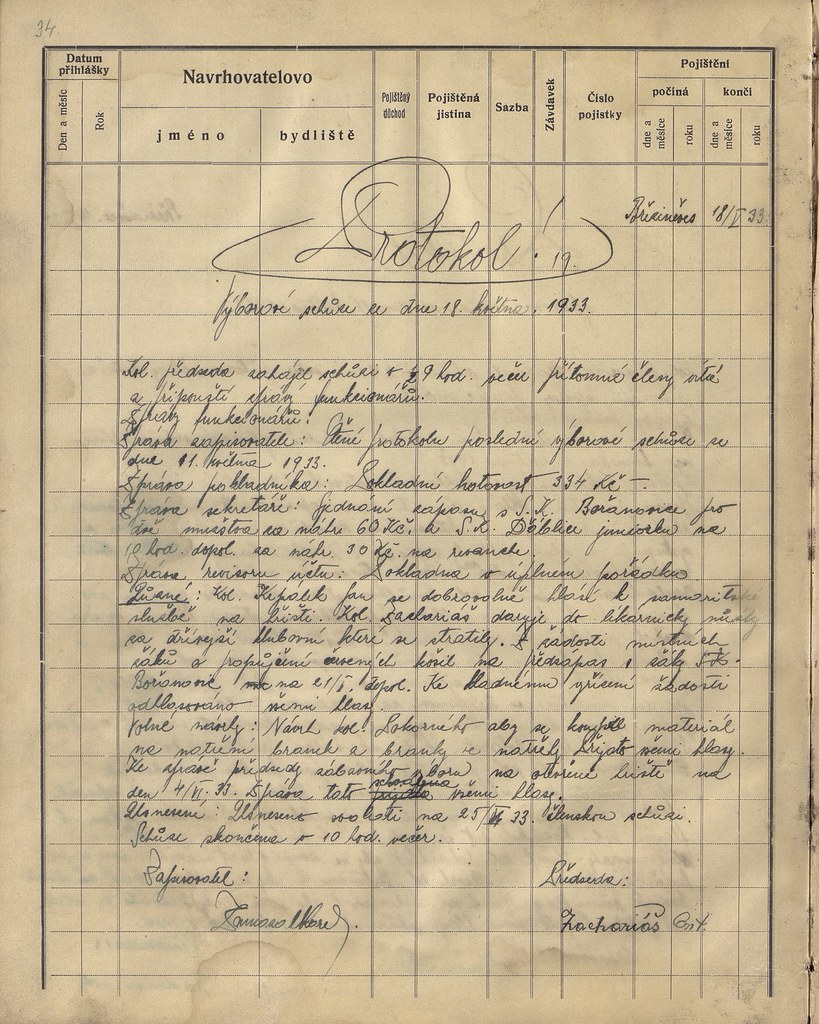 34.
Datum přihlášky
Den a měsíc
Rok
Navrhovatelovo
jméno
bydliště
Pojištěný důchod
Pojištěná jistina
Sazba
Závdavek
Číslo pojistky
Pojištění
počíná
končí
dne a měsíce
roku
dne a měsíce
roku
Březiněves 18/V 33.
Protokol! 19.
Výborové schůze ze dne 18. května. 1933.
Kol. předseda zahájil schůzi v ½ 9 hod. večer přítomné členy vítá
a připouští zprávy funkcionářů.
Zprávy funkcionářů:
Zpráva zapisovatele: Čtení protokolu poslední výborové schůze ze
dne 11. května 1933.
Zpráva pokladníka: Pokladní hotovost 334 Kč –.
Zpráva sekretáře: Sjednání zápasu s S.K. Bořanovice pro
dvě mužstva za náhr 60 Kč. a S.K. Ďáblice juniorku na
10 hod. dopol. za náhr. 30 Kč. na revanche.
Zpráva revisoru účtu: Pokladna v úplném pořádku.
Různé: Kol. Jan se dobrovolně hlásí k samaritské
službě na hřišti. Kol. Zachariáš daruje do lékárničky nůžky
za dřívější klubovní které se stratily. K žádosti místních
žáků o propůjčení červených košil na předzápas s žáky S.K.
Bořanovic, na 21/V. dopol. Ke kladnému vyřízení žádosti
odhlasováno všemi hlasy.
Volné návrhy: Návrh kol. Pokorného aby se koupil materiál
na natření branek a branky se natřely. Přijato všemi hlasy.
Ke zprávě předsedy zábavního výboru na otevření hřiště na
den 4/VI. 33. Zpráva tato schválena všemi hlasy.
Usnesení: Usneseno svolati na 25/V 33. členskou schůzi.
Schůze skončena v 10 hod. večer.
Zapisovatel:
Předseda:
Zachariáš